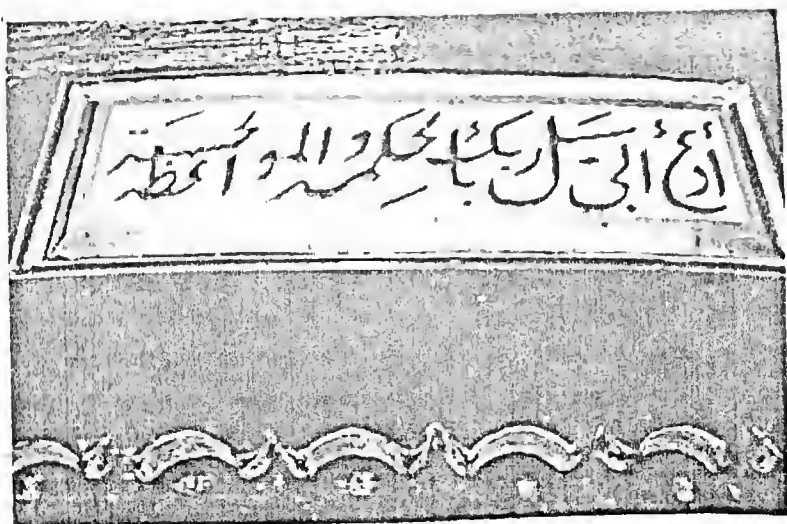 أدع ألى سبيل ربك بالحكمه والموعظه الحسنة